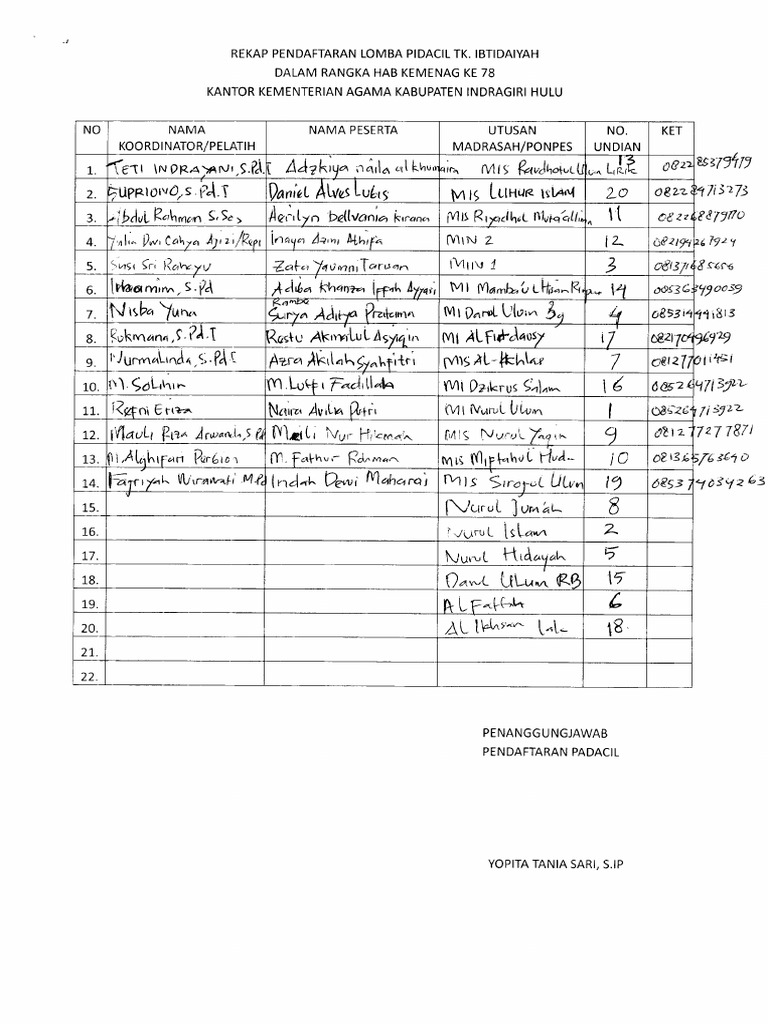 REKAP PENDAFTARAN LOMBA PIDACIL TK. IBTIDAIYAH
DALAM RANGKA HAB KEMENAG KE 78
KANTOR KEMENTERIAN AGAMA KABUPATEN INDRAGIRI HULU
NO NAMA KOORDINATOR/PELATIH NAMA PESERTA UTUSAN MADRASAH/PONPES NO. UNDIAN KET
1. TETI INDRAYANI, S.Pd.I Adzkiya naila al khumaira MIS Raudhotul Ulum Lirik 13 082285379479
2. SUPRIONO, S.Pd.I Daniel Alves Lubis MIS LUHUR ISLAM 20 082284713273
3. Abdul Rahman S.Sos Aerilyn bellvania kirana MIS Riyadhul Muta'allim 11 082268879170
4. Yulia Devi Cahya Inaya Azmi Athifa MIN 2 12 082194267924
5. Susi Sri Rahayu Zata Yaumni Taruan MIN 1 3
6. S.Pd Adiba Khanza Iffah Ayyasi MI Mamba'ul 14
7. Nisba Yuna Rambe Surya Aditya Pratama MI Darul Ulum Bg 4 085314441813
8. Rukmana, S.Pd.I Rastu Akmalul Asyiqin MI Al Firdausy 17 082170496929
9. Nurmalinda, S.Pd.I Azra Akilah Syahfitri MIS Al-Ikhlas 7 081277011451
10. M. Solihin M. Lutfi Fadillah MI Dzikrus Salam 16 085264713922
11. Refni Eriza Naira Avilia Putri MI Nurul Ulum 1 085264713922
12. Mauli Riza Arwanda, S.Pd Nur Hikmah MIS Nurul Yaqin 9 081277277871
13. M. Alghifari M. Fathur Rohman MIS Miftahul Huda 10 081365763640
14. Fajriyah Wirawati M.Pd Indah Dewi Maharai MIS Sirojul Ulum 19 085374034263
15. Nurul Jum'ah 8
16. Nurul Islam 2
17. Nurul Hidayah 5
18. Darul Ulum RB 15
19. Al Fattah 6
20. Al Ikhsan 18.
21.
22.
PENANGGUNGJAWAB
PENDAFTARAN PADACIL
YOPITA TANIA SARI, S.IP